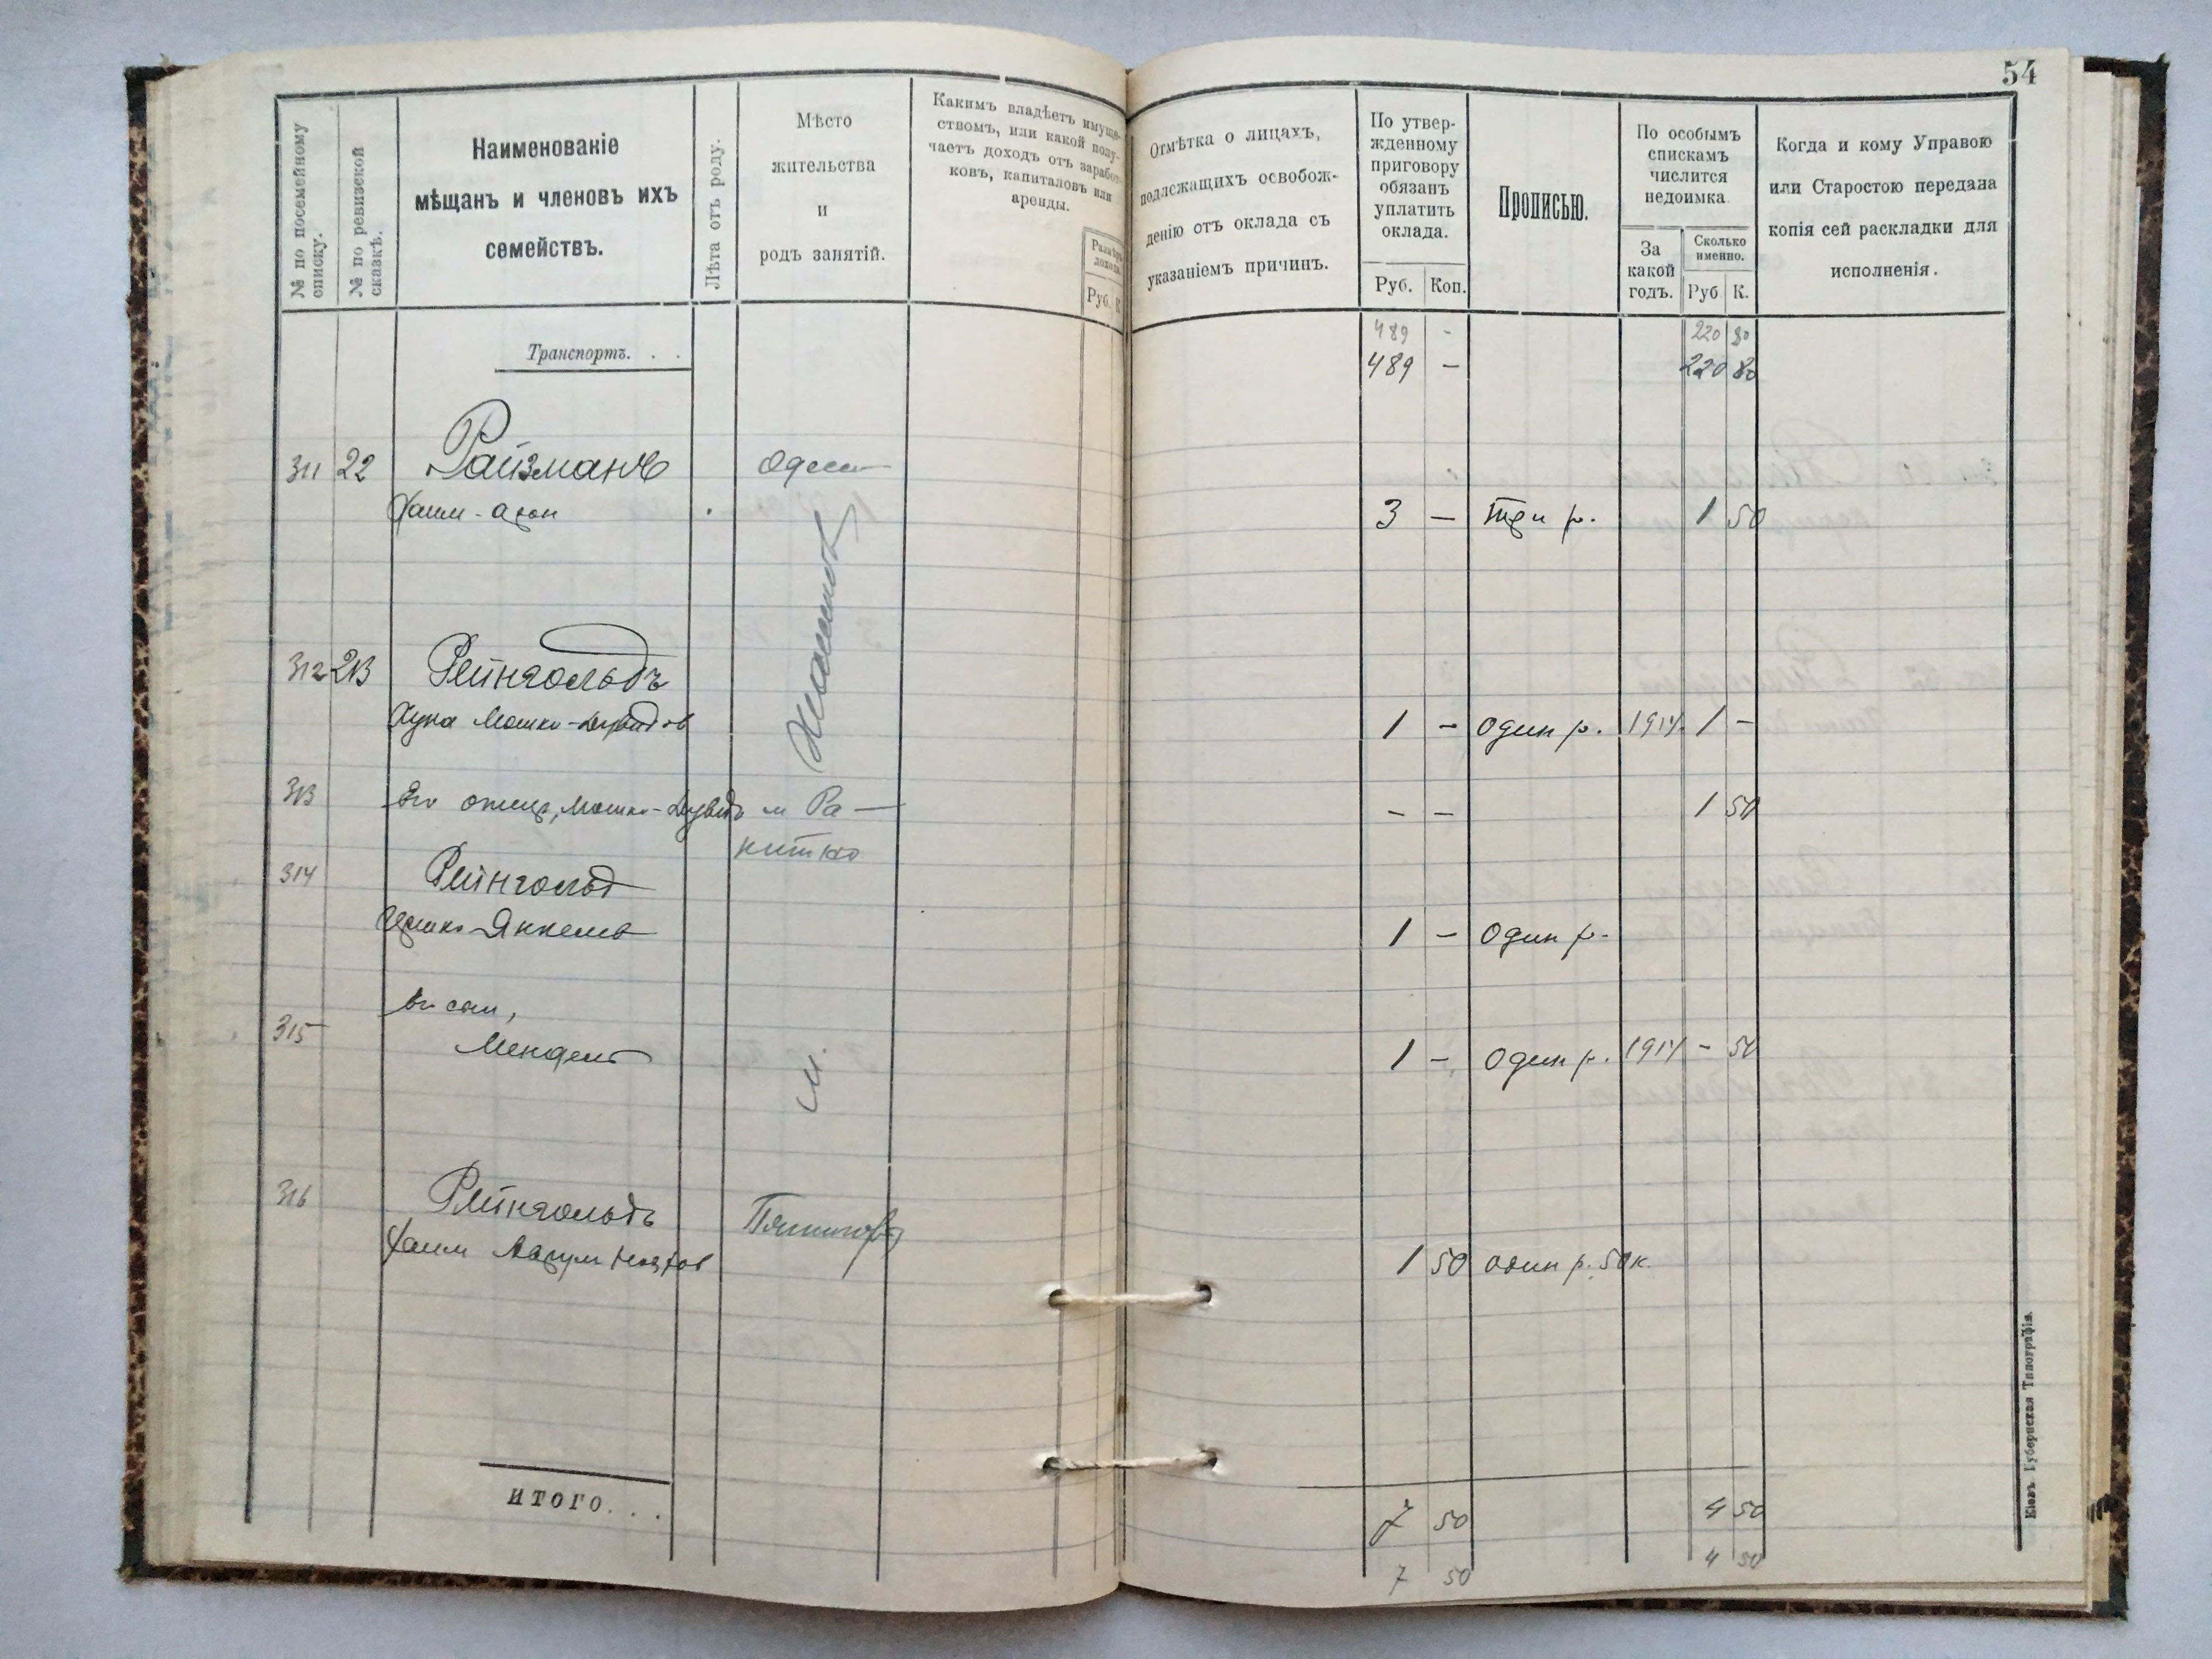 54
№ по посемейному списку.
№ по ревизской сказкѣ.
Наименованіе
мѣщанъ и членовъ ихъ
семействъ.
Лѣта отъ роду.
Мѣсто
жительства
и
родъ занятій.
Какимъ владѣетъ имуще-
ствомъ, или какой полу-
чаетъ доходъ отъ заработ-
ковъ, капиталовъ или
аренды.
Размѣръ
дохода.
Руб. К.
Отмѣтка о лицахъ,
подлежащихъ освобож-
денію отъ оклада съ
указаніемъ причинъ.
По утвер-
жденному
приговору
обязанъ
уплатить
оклада.
Руб. Коп.
Прописью.
По особымъ
спискамъ
числится
недоимка
За
какой
годъ.
Сколько
именно.
Руб К.
Когда и кому Управою
или Старостою передана
копія сей раскладки для
исполненія.
489 - 220 80
Транспортъ. . . 489 — 220 80
311 22 Райзманъ Одесс
Хаим-Арон 3 — три р. 1 50
312 213 Рейнгольдъ
Хуна Мошко-Дувидов 1 - один р. 1914 1 -
313 Его отец, Мошко-Дувидъ м Ра-
китно - - 1 50
314 Рейнгольд
Ицько-Янкель 1 - один р.
Его сын,
315 Мендель м. 1 - один р. 1914 - 50
316 Рейнгольдъ
Хаим 1 50 один р. 50 к.
ИТОГО. . . 7 50 4 50
7 50 4 50
Кіевъ Губернская Типографія.